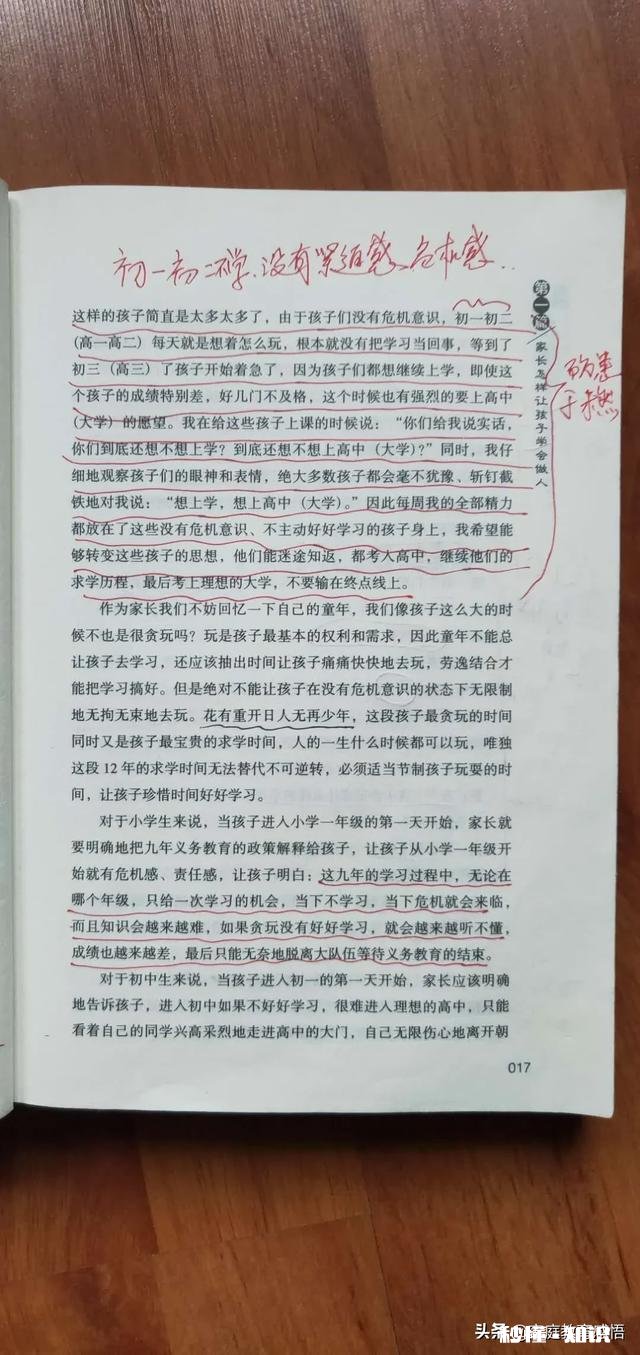 初一初二不学.没有紧迫感、危机感..
第一篇 家长怎样让孩子学会做人
防患
于未燃
这样的孩子简直是太多太多了，由于孩子们没有危机意识，初一初二
（高一高二）每天就是想着怎么玩，根本就没有把学习当回事，等到了
初三（高三）了孩子开始着急了，因为孩子们都想继续上学，即使这
个孩子的成绩特别差，好几门不及格，这个时候也有强烈的要上高中
（大学）的愿望。我在给这些孩子上课的时候说：“你们给我说实话，
你们到底还想不想上学？到底还想不想上高中（大学）？”同时，我仔
细地观察孩子们的眼神和表情，绝大多数孩子都会毫不犹豫、斩钉截
铁地对我说：“想上学，想上高中（大学）。”因此每周我的全部精力
都放在了这些没有危机意识、不主动好好学习的孩子身上，我希望能
够转变这些孩子的思想，他们能迷途知返，都考入高中，继续他们的
求学历程，最后考上理想的大学，不要输在终点线上。
作为家长我们不妨回忆一下自己的童年，我们像孩子这么大的时
候不也是很贪玩吗？玩是孩子最基本的权利和需求，因此童年不能总
让孩子去学习，还应该抽出时间让孩子痛痛快快地去玩，劳逸结合才
能把学习搞好。但是绝对不能让孩子在没有危机意识的状态下无限制
地无拘无束地去玩。花有重开日人无再少年，这段孩子最贪玩的时间
同时又是孩子最宝贵的求学时间，人的一生什么时候都可以玩，唯独
这段 12 年的求学时间无法替代不可逆转，必须适当节制孩子玩耍的时
间，让孩子珍惜时间好好学习。
对于小学生来说，当孩子进入小学一年级的第一天开始，家长就
要明确地把九年义务教育的政策解释给孩子，让孩子从小学一年级开
始就有危机感、责任感，让孩子明白：这九年的学习过程中，无论在
哪个年级，只给一次学习的机会，当下不学习，当下危机就会来临，
而且知识会越来越难，如果贪玩没有好好学习，就会越来越听不懂，
成绩也越来越差，最后只能无奈地脱离大队伍等待义务教育的结束。
对于初中生来说，当孩子进入初一的第一天开始，家长应该明确
地告诉孩子，进入初中如果不好好学习，很难进入理想的高中，只能
看着自己的同学兴高采烈地走进高中的大门，自己无限伤心地离开朝
017
头条 @家庭教育感悟